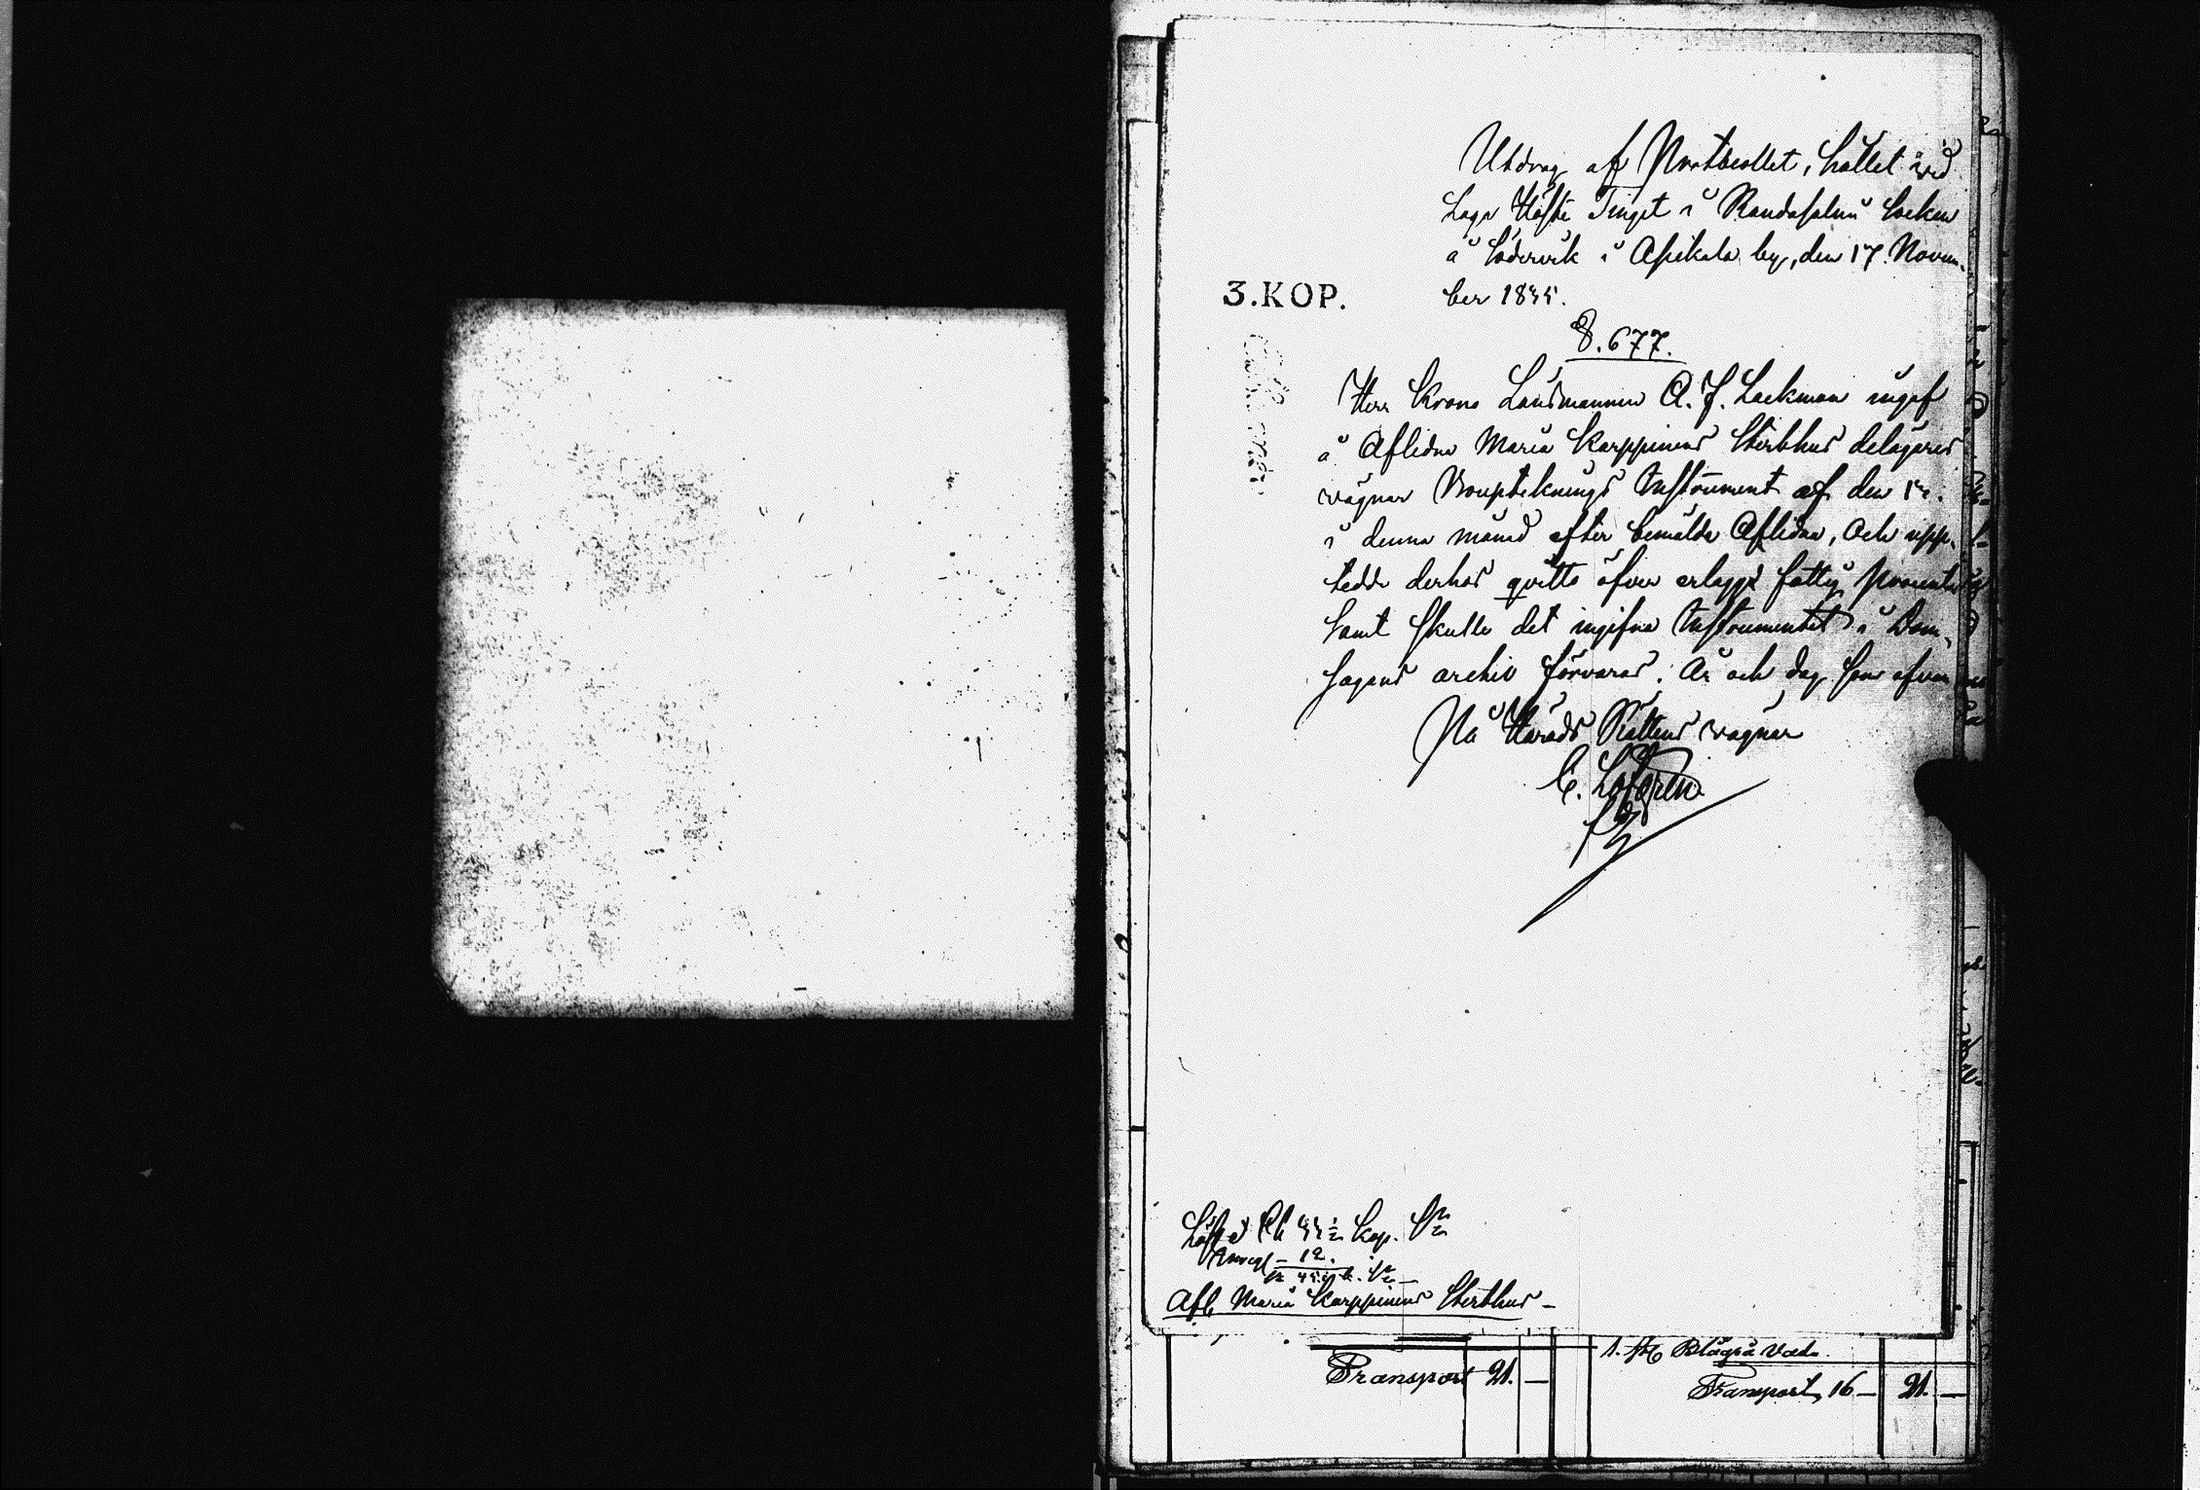 Utdrag af Protocollet, hållet vid
Laga Höste Tinget i Randasalmi Socken
å Södervik i Asikala by, den 17. Novem-
ber 1845.
3.KOP.
§. 677.
Herr Krono Länsmannen A. F. Lackman ingaf
å Aflidna Maria Karppinens Sterbhus delägares
vägnar Bouptecknings Instrument af den
i denna månad efter bemälde Aflidna, och upp-
tedde derhos qvitto öfver erlagd fattig Procent
samt skulle det ingifna Instrumentet i Dom-
sagans archiv förvaras. År och dag som ofvan
På Härads Rättens vägnar
C. Löfgren
Lösen kop. Sr
12.
Afl. Maria Karppinens Sterbhus
Transport 21. —
1. st. Blågrå Vads
Transport 16 — 21. —